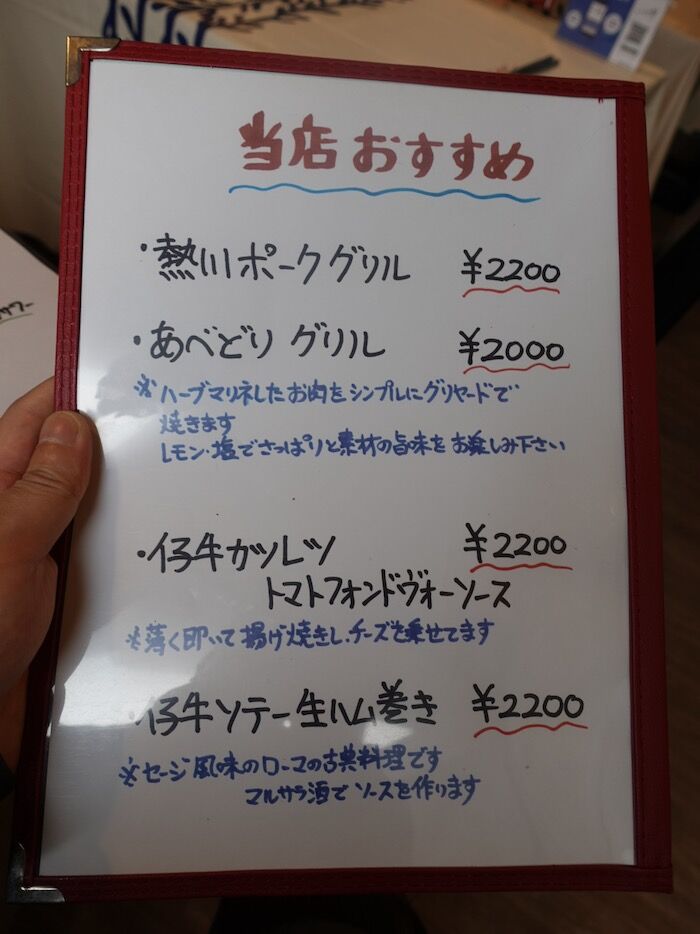 当店おすすめ
・熱川ポークグリル ¥2200
・あべどり グリル ¥2000
※ハーブマリネしたお肉をシンプルにグリヤードで
焼きます
レモン・塩でさっぱりと素材の旨味をお楽しみ下さい
・仔牛カツレツ ¥2200
トマトフォンドヴォーソース
※薄く叩いて揚げ焼きし、チーズを乗せてます
・仔牛ソテー生ハム巻き ¥2200
※セージ風味のローマの古典料理です
マルサラ酒でソースを作ります
サワー